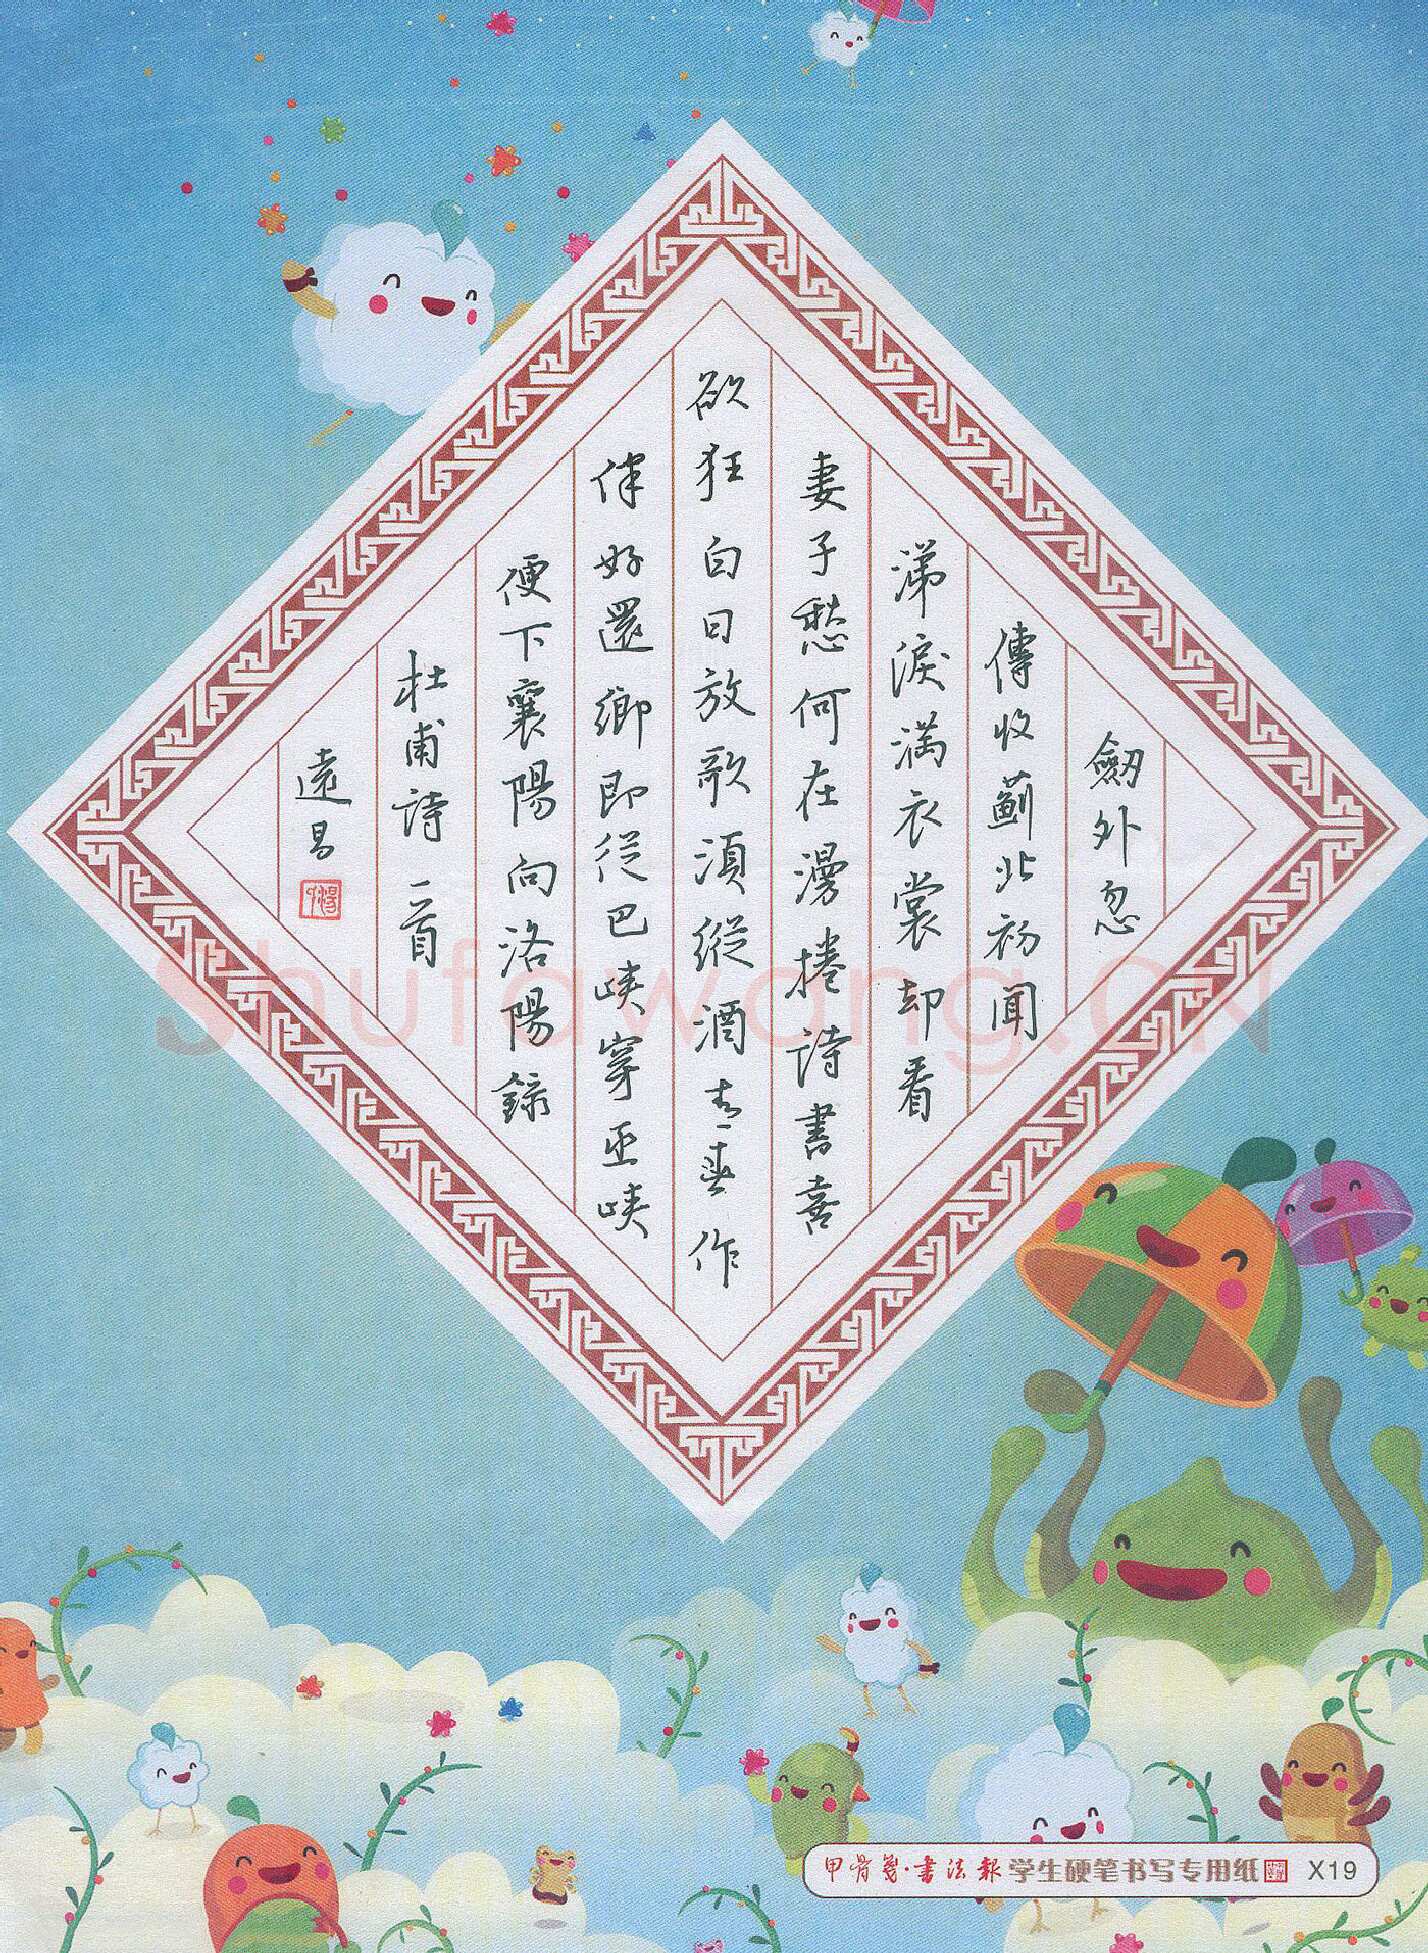 劒外忽
傳收薊北初聞
涕淚满衣裳却看
妻子愁何在漫捲詩書喜
欲狂白日放歌須縱酒青春作
伴好還鄉即從巴峽穿巫峽
便下襄陽向洛陽録
杜甫詩一首
遠昌
Shufawang.CN
甲骨笺·書法報 学生硬笔书写专用纸 X19